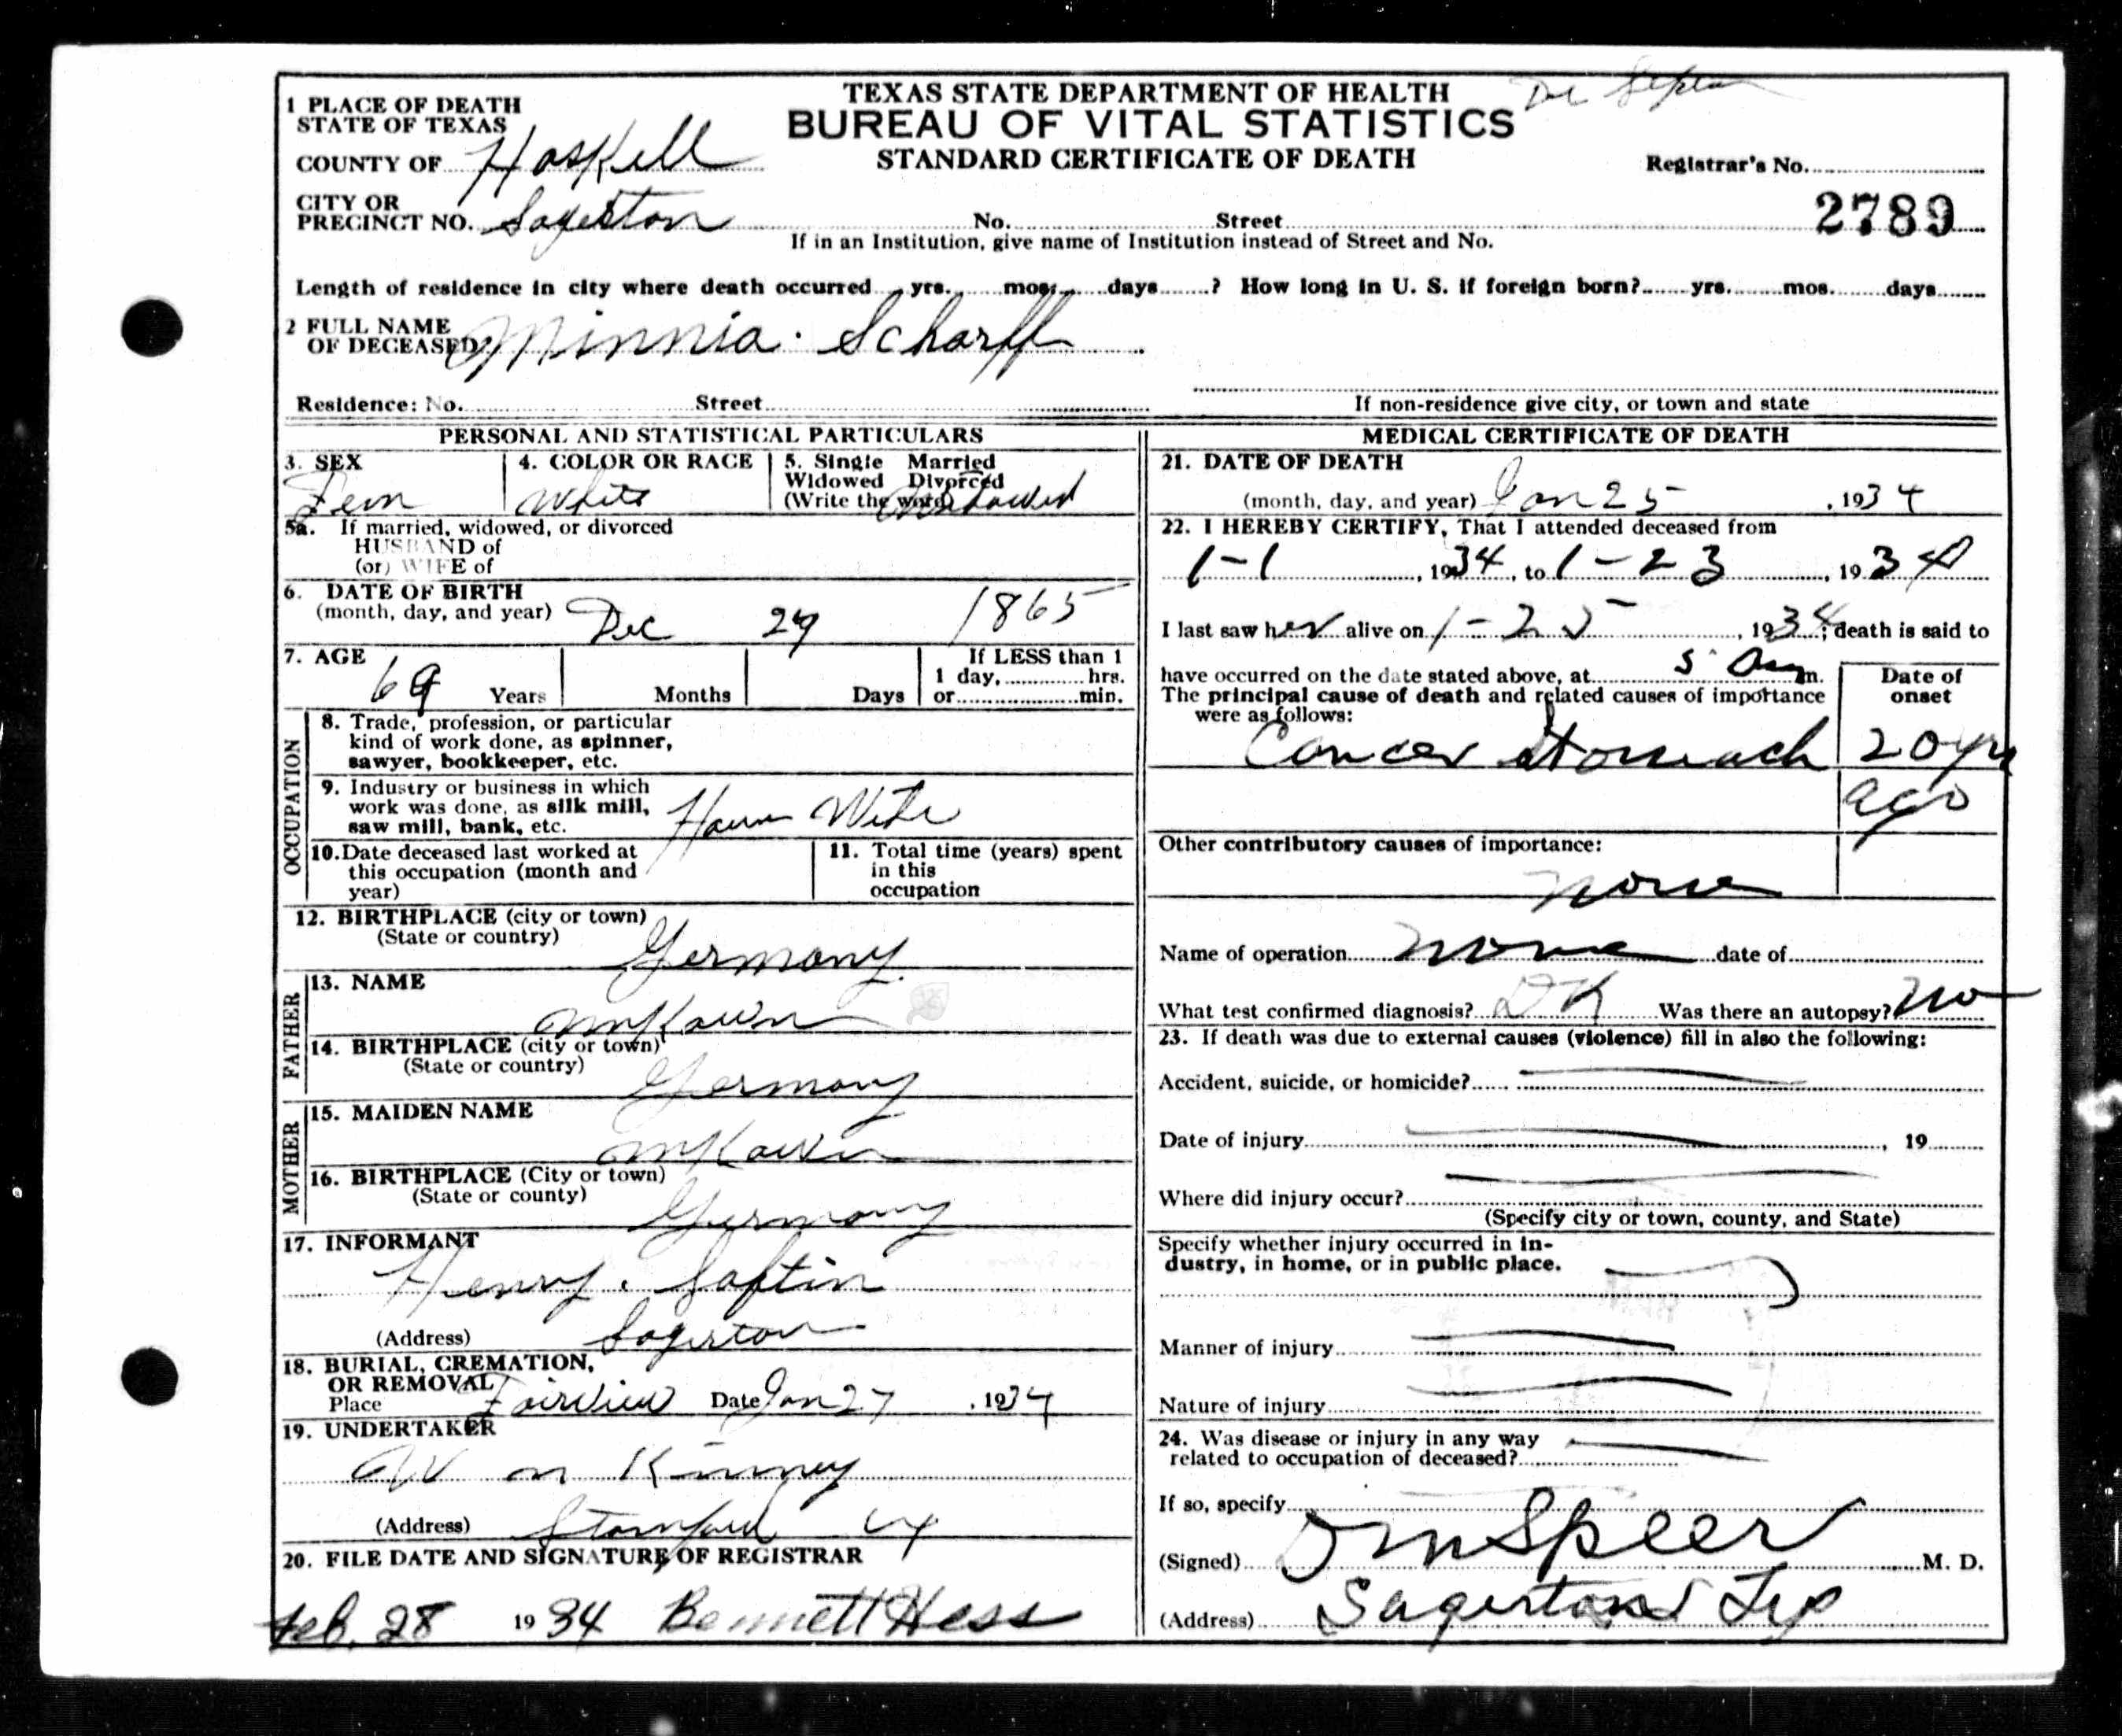 TEXAS STATE DEPARTMENT OF HEALTH
BUREAU OF VITAL STATISTICS
STANDARD CERTIFICATE OF DEATH
1 PLACE OF DEATH
STATE OF TEXAS
COUNTY OF Haskell
Registrar's No.
CITY OR
PRECINCT NO. Sagerton No. Street 2789
If in an Institution, give name of Institution instead of Street and No.
Length of residence in city where death occurred yrs. mos. days ? How long in U. S. if foreign born? yrs. mos. days
2 FULL NAME
OF DECEASED Minnia Scharff
Residence: No. Street
If non-residence give city, or town and state
PERSONAL AND STATISTICAL PARTICULARS
3. SEX Fem
4. COLOR OR RACE White
5. Single Married
Widowed Divorced
(Write the word) Widowed
5a. If married, widowed, or divorced
HUSBAND of
(or) WIFE of
6. DATE OF BIRTH
(month, day, and year) Dec 29 1865
7. AGE 69 Years Months Days
If LESS than 1
1 day, hrs.
or min.
OCCUPATION
8. Trade, profession, or particular
kind of work done, as spinner,
sawyer, bookkeeper, etc.
9. Industry or business in which
work was done, as silk mill,
saw mill, bank, etc. House Wife
10. Date deceased last worked at
this occupation (month and
year)
11. Total time (years) spent
in this
occupation
12. BIRTHPLACE (city or town)
(State or country) Germany
FATHER
13. NAME
14. BIRTHPLACE (city or town)
(State or country) Germany
MOTHER
15. MAIDEN NAME
16. BIRTHPLACE (City or town)
(State or county) Germany
17. INFORMANT
Henry
(Address) Sagerton
18. BURIAL, CREMATION,
OR REMOVAL
Place Fairview Date Jan 27, 1934
19. UNDERTAKER
Kinney
(Address) Stamford
20. FILE DATE AND SIGNATURE OF REGISTRAR
Feb. 28 1934 Bennett Hess
MEDICAL CERTIFICATE OF DEATH
21. DATE OF DEATH
(month, day, and year) Jan 25, 1934
22. I HEREBY CERTIFY, That I attended deceased from
1-1, 1934, to 1-23, 1934
I last saw her alive on 1-25, 1934; death is said to
have occurred on the date stated above, at 5 am.
The principal cause of death and related causes of importance
were as follows:
Date of
onset
Cancer Stomach 20 yrs
ago
Other contributory causes of importance:
None
Name of operation None date of
What test confirmed diagnosis? DK Was there an autopsy? No
23. If death was due to external causes (violence) fill in also the following:
Accident, suicide, or homicide?
Date of injury, 19
Where did injury occur?
(Specify city or town, county, and State)
Specify whether injury occurred in in-
dustry, in home, or in public place.
Manner of injury
Nature of injury
24. Was disease or injury in any way
related to occupation of deceased?
If so, specify
(Signed) Speer M. D.
(Address) Sagerton